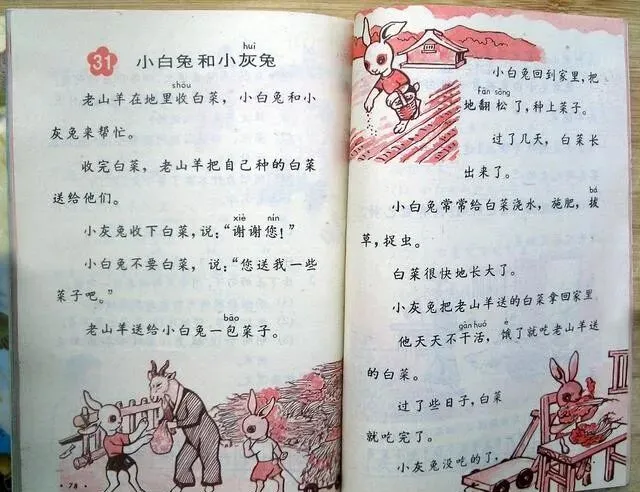 31 小白兔和小灰兔
huī
shōu
老山羊在地里收白菜，小白兔和小
灰兔来帮忙。
收完白菜，老山羊把自己种的白菜
送给他们。
xiè nín
小灰兔收下白菜，说：“谢谢您！”
小白兔不要白菜，说：“您送我一些
菜子吧。”
bāo
老山羊送给小白兔一包菜子。
·78·
小白兔回到家里，把
fān sōng
地翻松了，种上菜子。
过了几天，白菜长
出来了。
bá
小白兔常常给白菜浇水，施肥，拔
草，捉虫。
白菜很快地长大了。
小灰兔把老山羊送的白菜拿回家里
gàn huó è
他天天不干活，饿了就吃老山羊送
的白菜。
过了些日子，白菜
就吃完了。
小灰兔没吃的了，